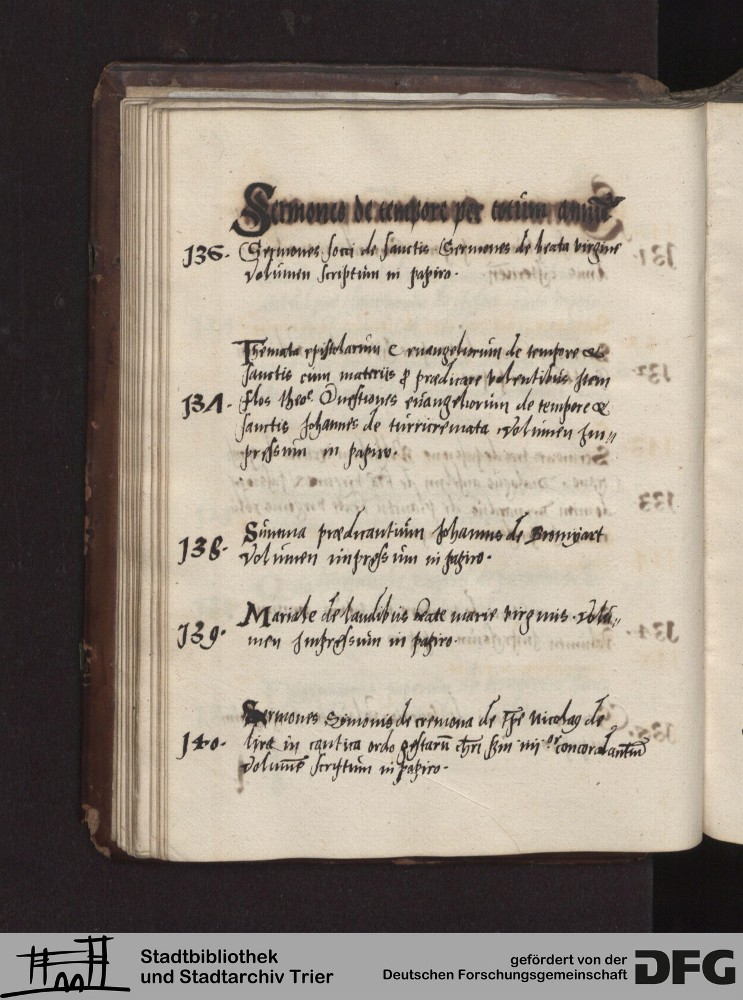 Sermones de tempore per totum annū
136. Sermones socci de sanctis Sermones de beata virgine
volumen scriptum in papiro.
Themata epistolarum & euangeliorum de tempore &
sanctis cum materiis ꝓ prædicare volentibus Item
137. Flos theoᵉ Questiones euangeliorum de tempore &
sanctis Johannes de turricremata volumen Im〃
pressum in papiro.
Summa prædicantium Johannis de Bromyart
138. volumen impressum in papiro.
Mariale de laudibus beate marie virginis. volu〃
139. men Impressum in papiro.
Sermones Simonis de cremona de Nicolaꝰ de
140. lira in cantica ordo gestarū chr̄i scdm iiiiᵒʳ concordantiū
volumē scriptum in papiro.
Stadtbibliothek
und Stadtarchiv Trier
gefördert von der
Deutschen Forschungsgemeinschaft
DFG